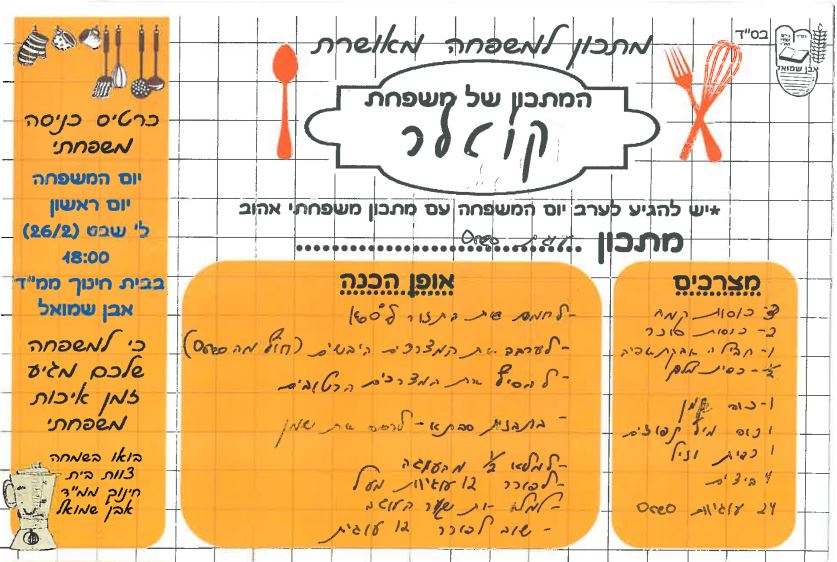 בס"ד
אבן שמואל
מתכון למשפחה מאושרת
המתכון של משפחת
קואלר
*יש להגיע לערב יום המשפחה עם מתכון משפחתי אהוב
מתכון עוגת oreo
כרטיס כניסה
משפחתי
יום המשפחה
יום ראשון
ל' שבט (26/2)
18:00
בבית חינוך ממ"ד
אבן שמואל
כי למשפחה
שלכם מגיע
זמן איכות
משפחתי
בואו בשמחה
צוות בית
חינוך ממ"ד
אבן שמואל
מצרכים
3- כוסות קמח
2- כוסות סוכר
1- חבילה אבקת אפיה
½- כפית מלח
1- כוס שמן
1 כוס מיץ תפוזים
1 כפית וניל
4 ביצים
24 עוגיות oreo
אופן הכנה
-לחמם את התנור ל°180
-לערבב את המצרכים היבשים (חוץ מה oreo)
-להוסיף את המצרכים הרטובים
- בתבנית סבתא - לרסס את שמן
-למלא ½ מהעוגה
-לפורר 12 עוגיות מעל
-למלא את שאר העוגה
- שוב לפורר 12 עוגיות